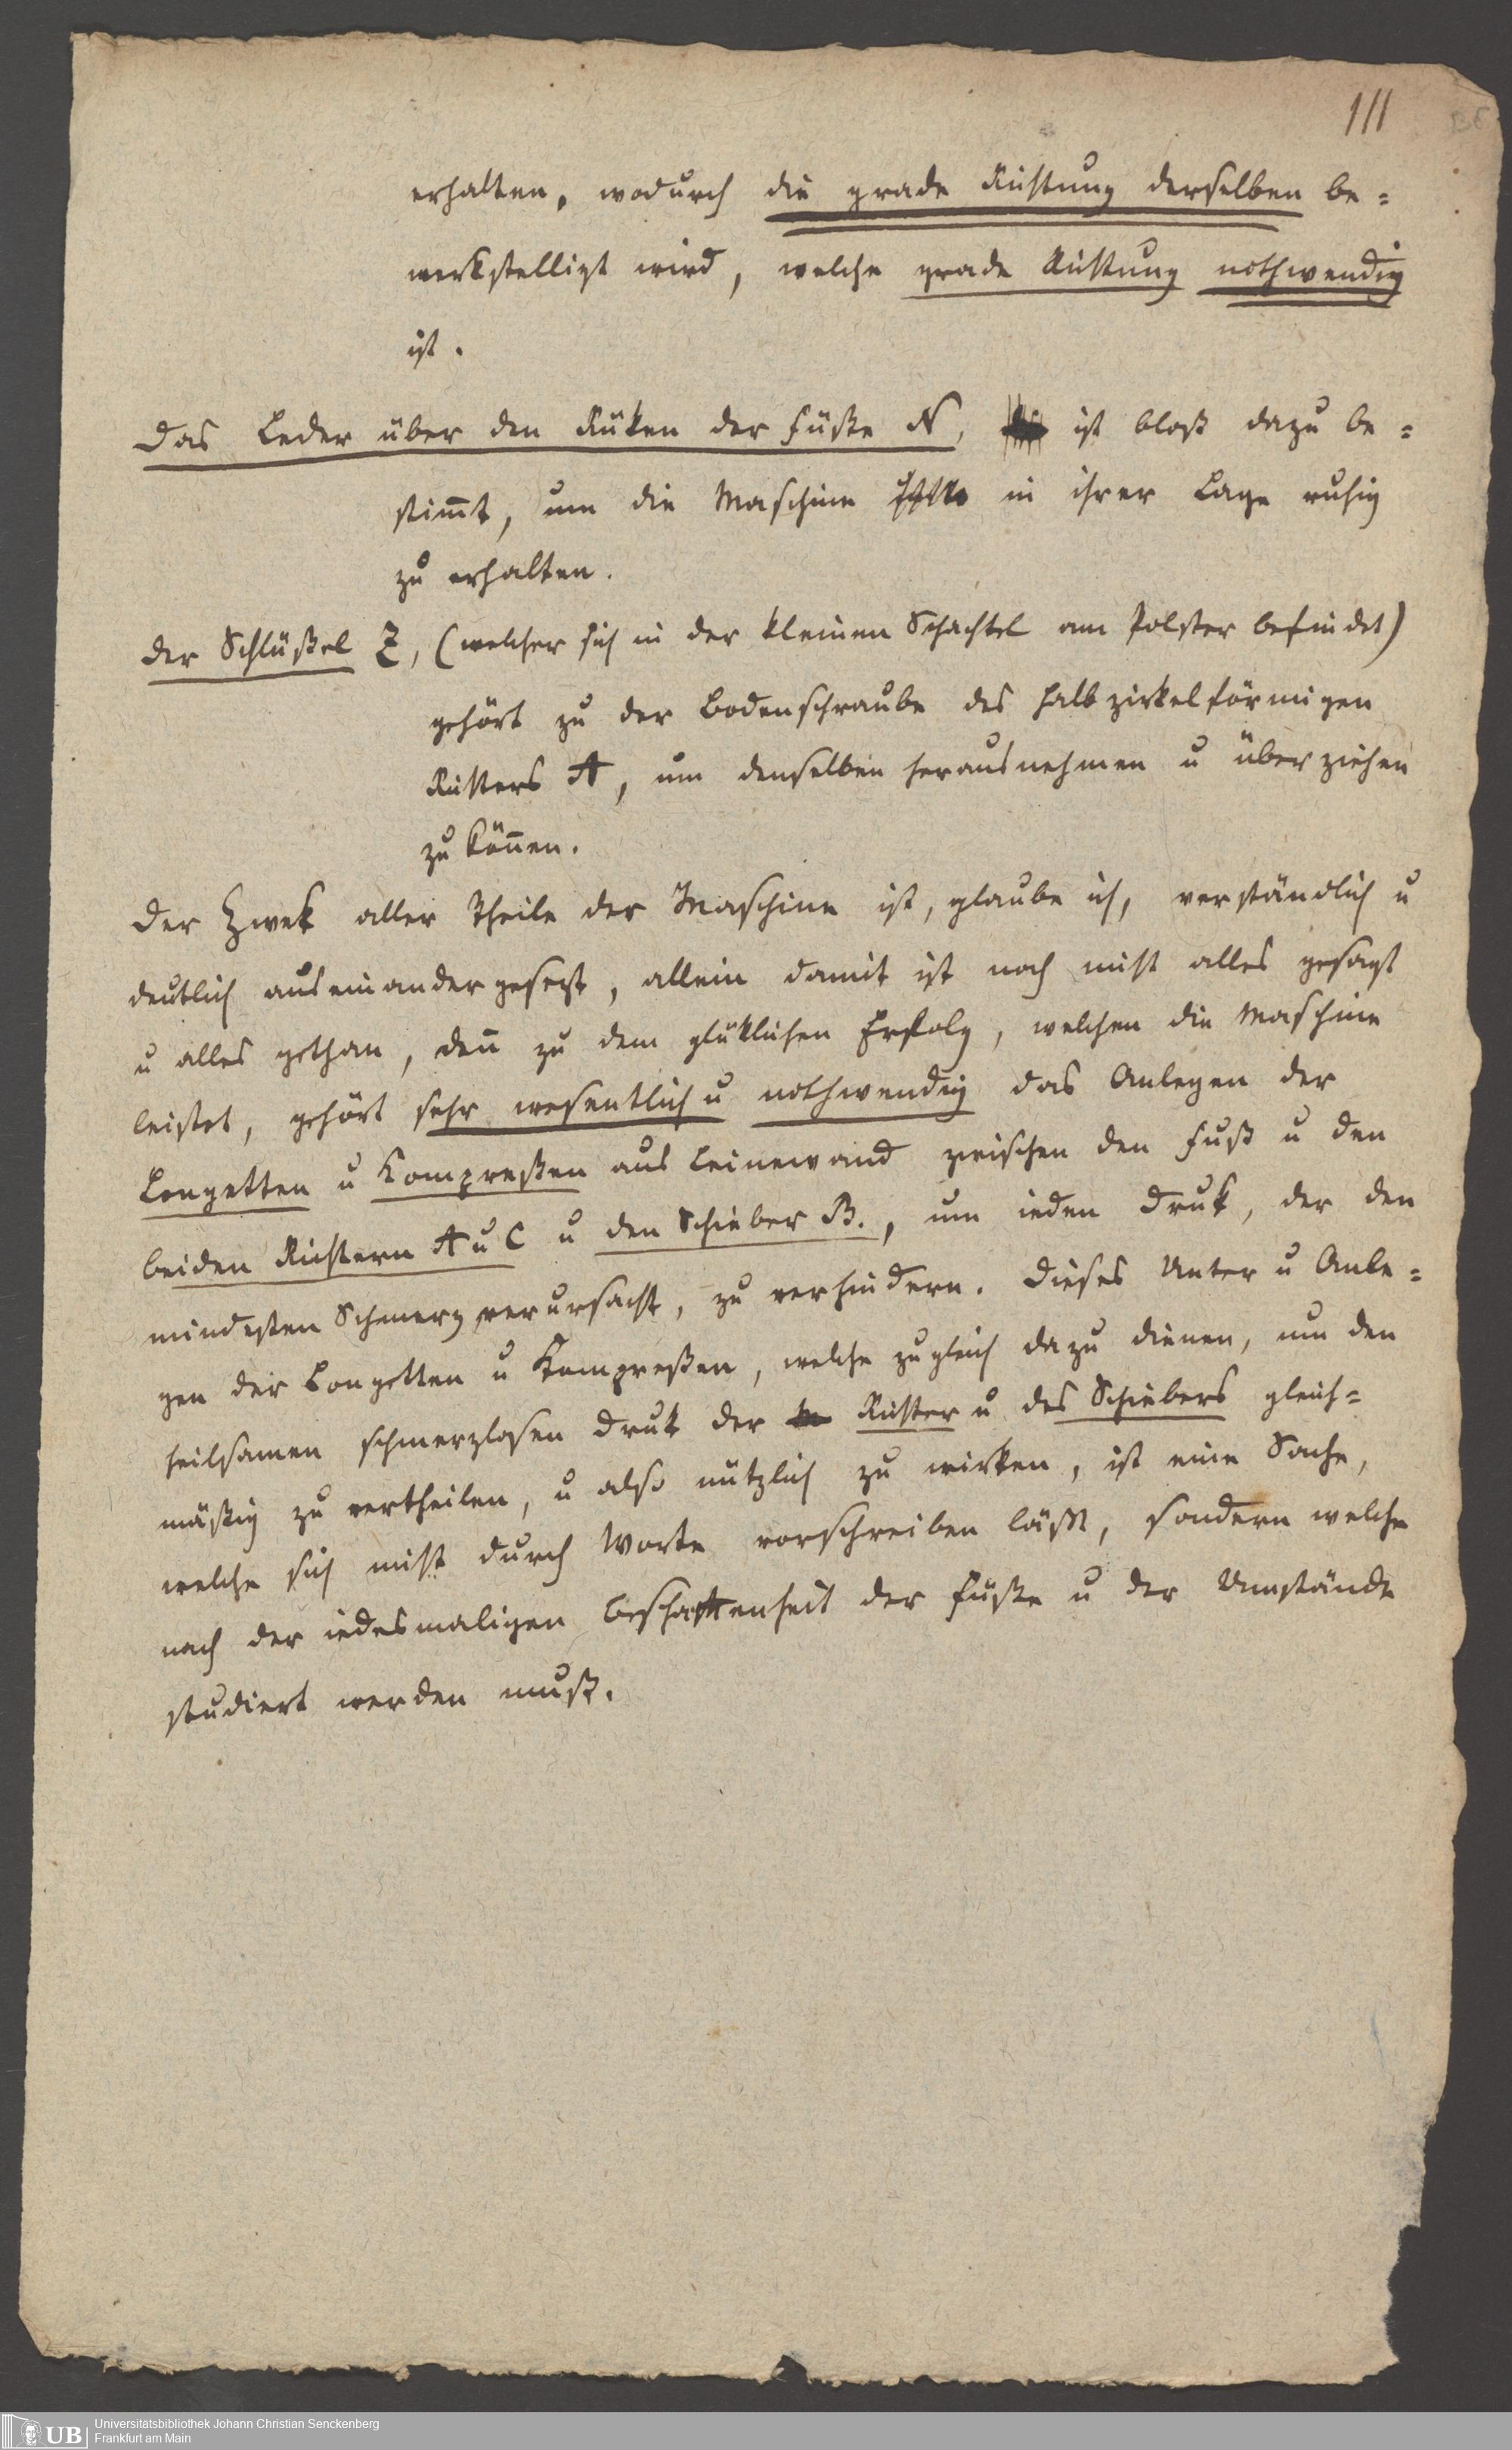 111
BE
erhalten, wodurch die grade Richtung derselben be=
werkstelligt wird, welche grade Richtung nothwendig
ist.
Das Leder über den Rüken der Füße N, ist bloß dazu be=
stim̄t, um die Maschine in ihrer Lage ruhig
zu erhalten.
Der Schlüßel Z, (welcher sich in der kleinen Schachtel am Polster befindet)
gehört zu der Bodenschraube des halbzirkelförmigen
Richters A, um denselben herausnehmen u überziehen
zu kön̄en.
Der Zwek aller Theile der Maschine ist, glaube ich, verständlich u
deutlich auseinandergesezt, allein damit ist noch nicht alles gesagt
u alles gethan, den̄ zu dem glüklichen Erfolg, welchen die Maschine
leistet, gehört sehr wesentlich u nothwendig das Anlegen der
Longetten u Kompreßen aus Leinewand zwischen den Fuß u den
beiden Richtern A u C u den Schieber B., um ieden Druk, der den
mindesten Schmerz verursacht, zu verhindern. Dieses Unter u Anle=
gen der Longetten u Kompreßen, welche zugleich dazu dienen, um den
heilsamen schmerzlosen Druk der Richter u des Schiebers gleich=
mäßig zu vertheilen, u also nützlich zu wirken, ist eine Sache,
welche sich nicht durch Worte vorschreiben läßt, sondern welche
nach der iedesmaligen Beschaffenheit der Füße u der Umstände
studiert werden muß.
UB
Universitätsbibliothek Johann Christian Senckenberg
Frankfurt am Main